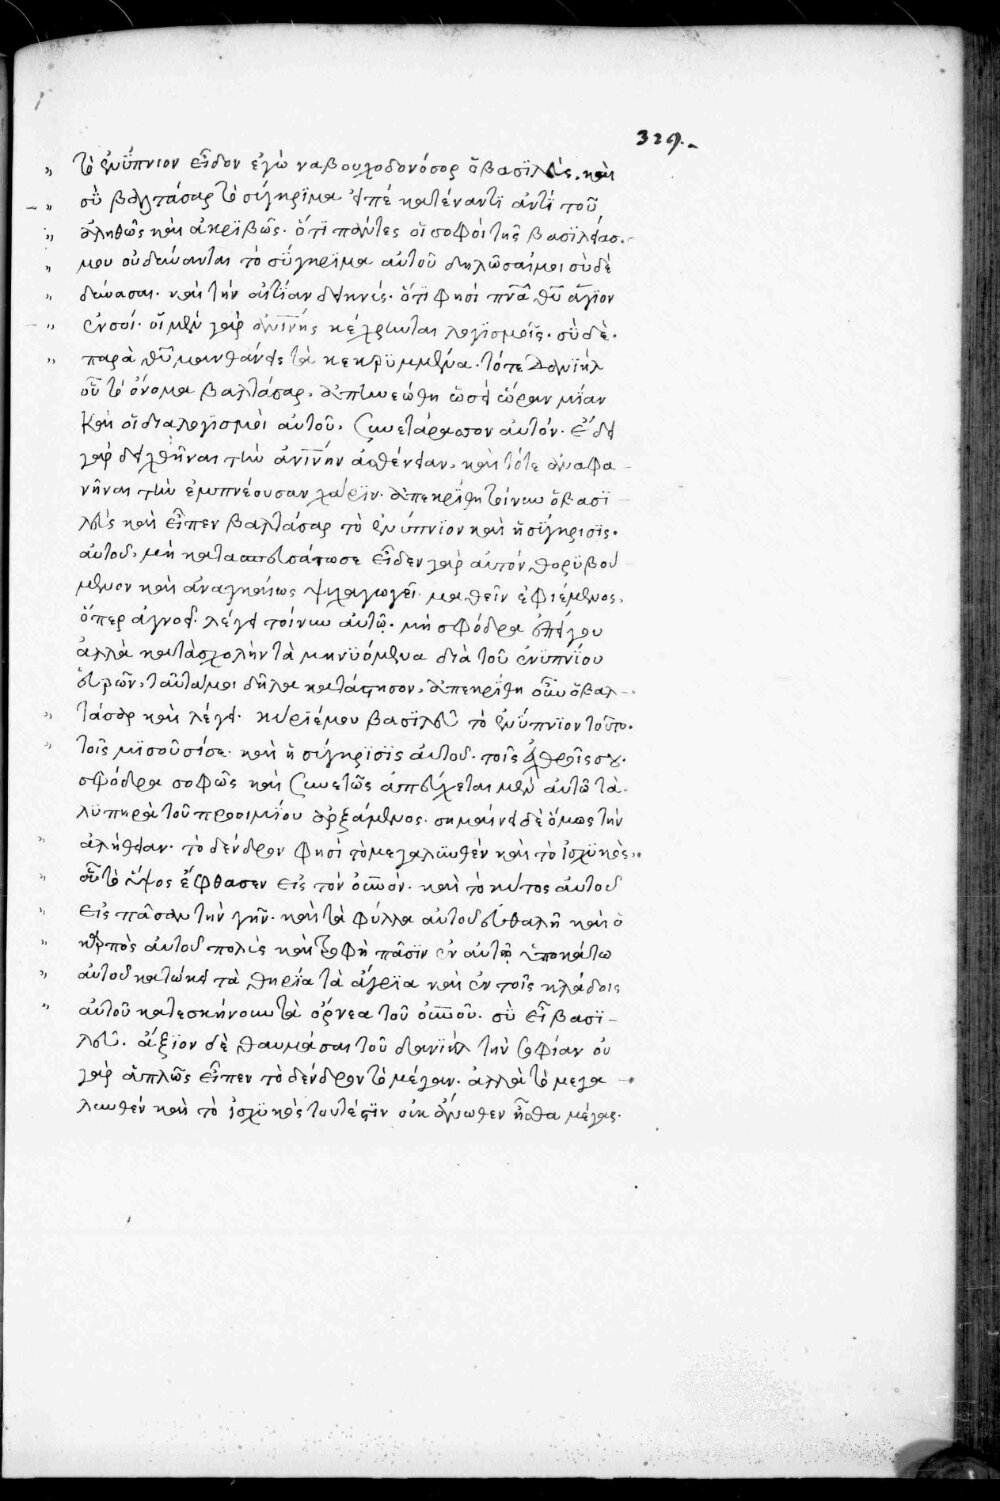 329.
τὸ ἐνΰπνιον εἶδον ἐγὼ ναβουχοδονόσορ ὁ βασϊλεὺς. καὶ
σὺ βαλτάσαρ τὸ σύγκρϊμα εἰπὲ κατέναντϊ ἀντὶ τοῦ
ἀληθῶς καὶ ἀκρϊβῶς. ὅτι πάντες οἱ σοφοὶ τῆς βασϊλείας.
μου οὐ δύνανται τὸ σύγκρϊμα αὐτοῦ δηλῶσαί μοι σὺ δὲ
δύνασαι. καὶ τὴν αἰτΐαν δεικνύς. ὅτϊ φησὶ πνα θυ ἅγϊον
ἐν σοί. οἱ μὲν γὰρ κέχρηνται λογϊσμοῖς. σὺ δὲ.
παρὰ θυ μανθάνεις τὰ κεκρϋμμένα. τότε Δανϊὴλ
οὗ τὸ ὄνομα βαλτάσαρ. ἀπηνεώθη ὡσεὶ ὥραν μΐαν
καὶ οἱ διαλογισμοὶ αὐτοῦ. συνετάρασσον αὐτόν. ἔδει
γὰρ δειχθῆναι τὴν ἀνΐνην ἀσθένειαν. καὶ τότε ἀναφα-
νῆναι τὴν ἐμπνέουσαν χάρϊν. ἀπεκρΐθη τοίνυν ὁ βασϊ-
λεὺς καὶ εἶπεν βαλτάσαρ τὸ ἐνύπνϊον καὶ ἡ σύγκρισϊς.
αὐτοῦ. μὴ κατασπευσάτωσε εἶδεν γὰρ αὐτὸν θορϋβού
μενον καὶ ἀναγκαίως ψυχαγωγεῖ. μαθεῖν ἐφιέμενος.
ὅπερ ἀγνοεῖ. λέγει τοίνυν αὐτῷ. μὴ σφόδρα ἐπείγου
ἀλλὰ κατὰ σχολὴν τὰ μηνϋόμενα διὰ τοῦ ἐνϋπνΐου
εὑρῶν, ταῦτα μοι δῆλα κατάστησον. ἀπεκρΐθη οὖν ὁ βαλ-
τάσαρ καὶ λέγει. κύρϊέ μου βασϊλεῦ τὸ ἐνύπνϊον τοῦτο.
τοῖς μϊσοῦσί σε. καὶ ἡ σύγκρϊσϊς αὐτοῦ. τοῖς ἐχθροῖς σου.
σφόδρα σοφῶς καὶ συνετῶς ἀπεύχεται μὲν αὐτῷ τὰ
λϋπηρὰ τοῦ προοιμΐου ἀρξάμενος. σημαίνει δὲ ὅμως τὴν
ἀλήθειαν. τὸ δένδρον φησὶ τὸ μεγαλυνθὲν καὶ τὸ ἰσχϋκὸς.
οὗ τὸ ὕψος ἔφθασεν εἰς τὸν οὐνον. καὶ τὸ κύτος αὐτοῦ
εἰς πᾶσαν τὴν γῆν. καὶ τὰ φύλλα αὐτοῦ εὐθαλῆ καὶ ὁ
καρπὸς αὐτοῦ πολὺς καὶ τροφὴ πᾶσϊν ἐν αὐτῷ ὑποκάτω
αὐτοῦ κατώκει τὰ θηρΐα τὰ ἄγρϊα καὶ ἐν τοῖς κλάδοις
αὐτοῦ κατεσκήνουν τὰ ὄρνεα τοῦ οὐνου. σὺ εἶ βασϊ-
λεῦ. ἄξϊον δὲ θαυμάσαι τοῦ δανϊὴλ τὴν σοφίαν οὐ
γὰρ ἁπλῶς εἶπεν τὸ δένδρον τὸ μέγαν. ἀλλὰ τὸ μεγα-
λυνθέν καὶ τὸ ἰσχϋκὸς τουτέστϊν οὐκ ἄνωθεν ἦσθα μέγας.